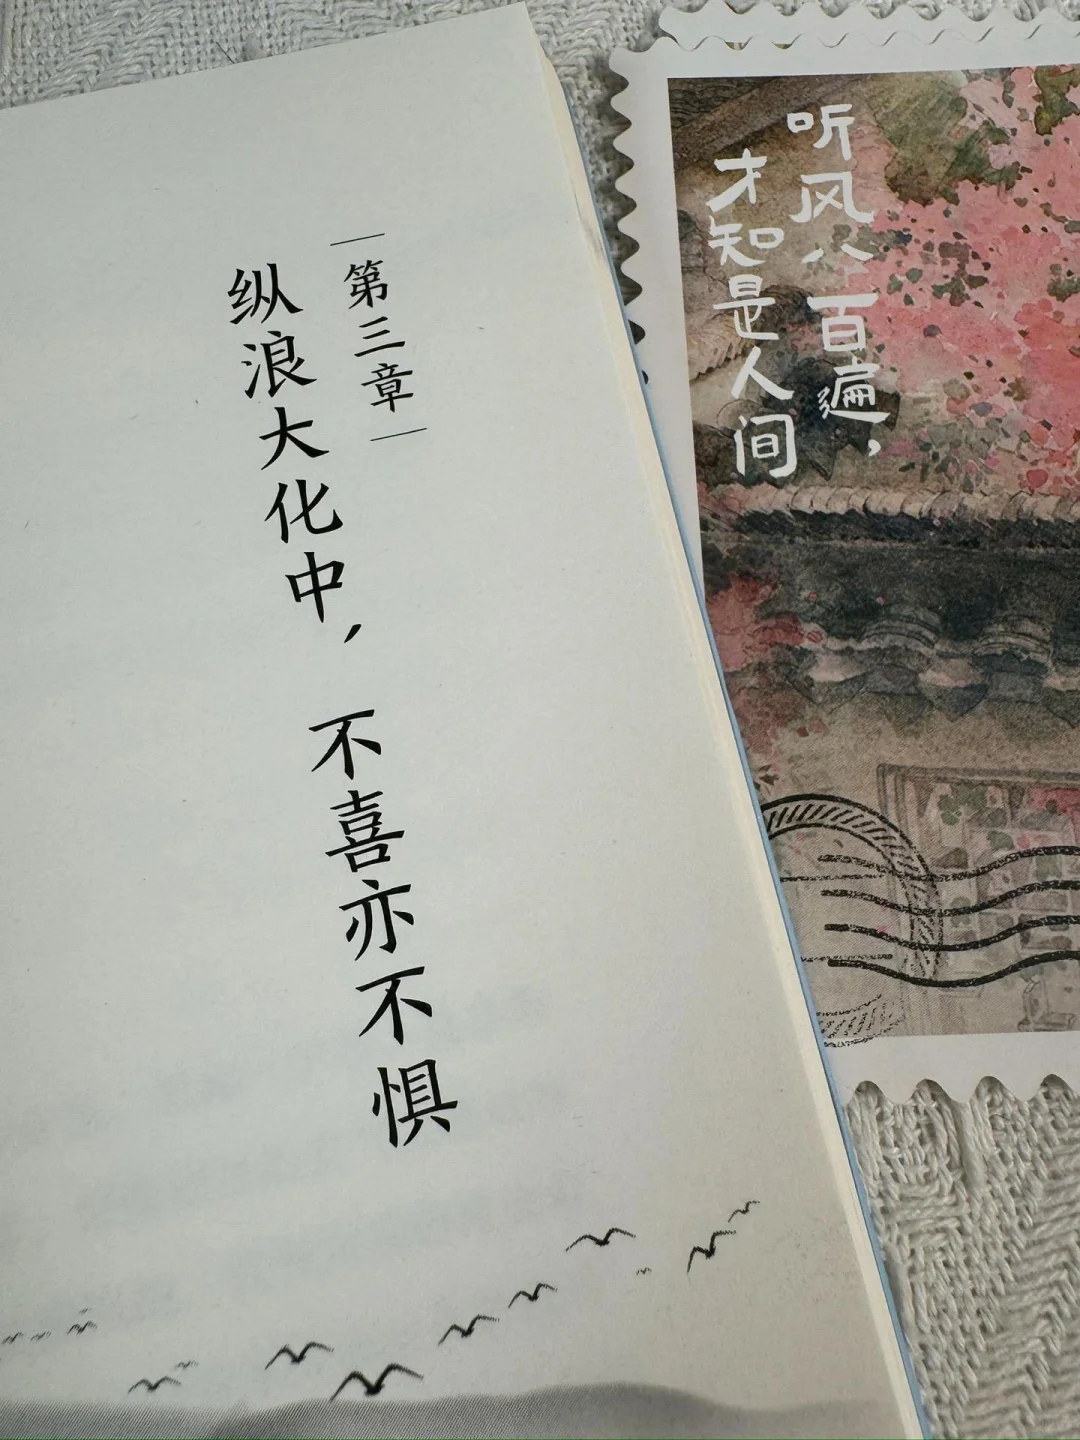 第三章
纵浪大化中，不喜亦不惧
听风八百遍，
才知是人间